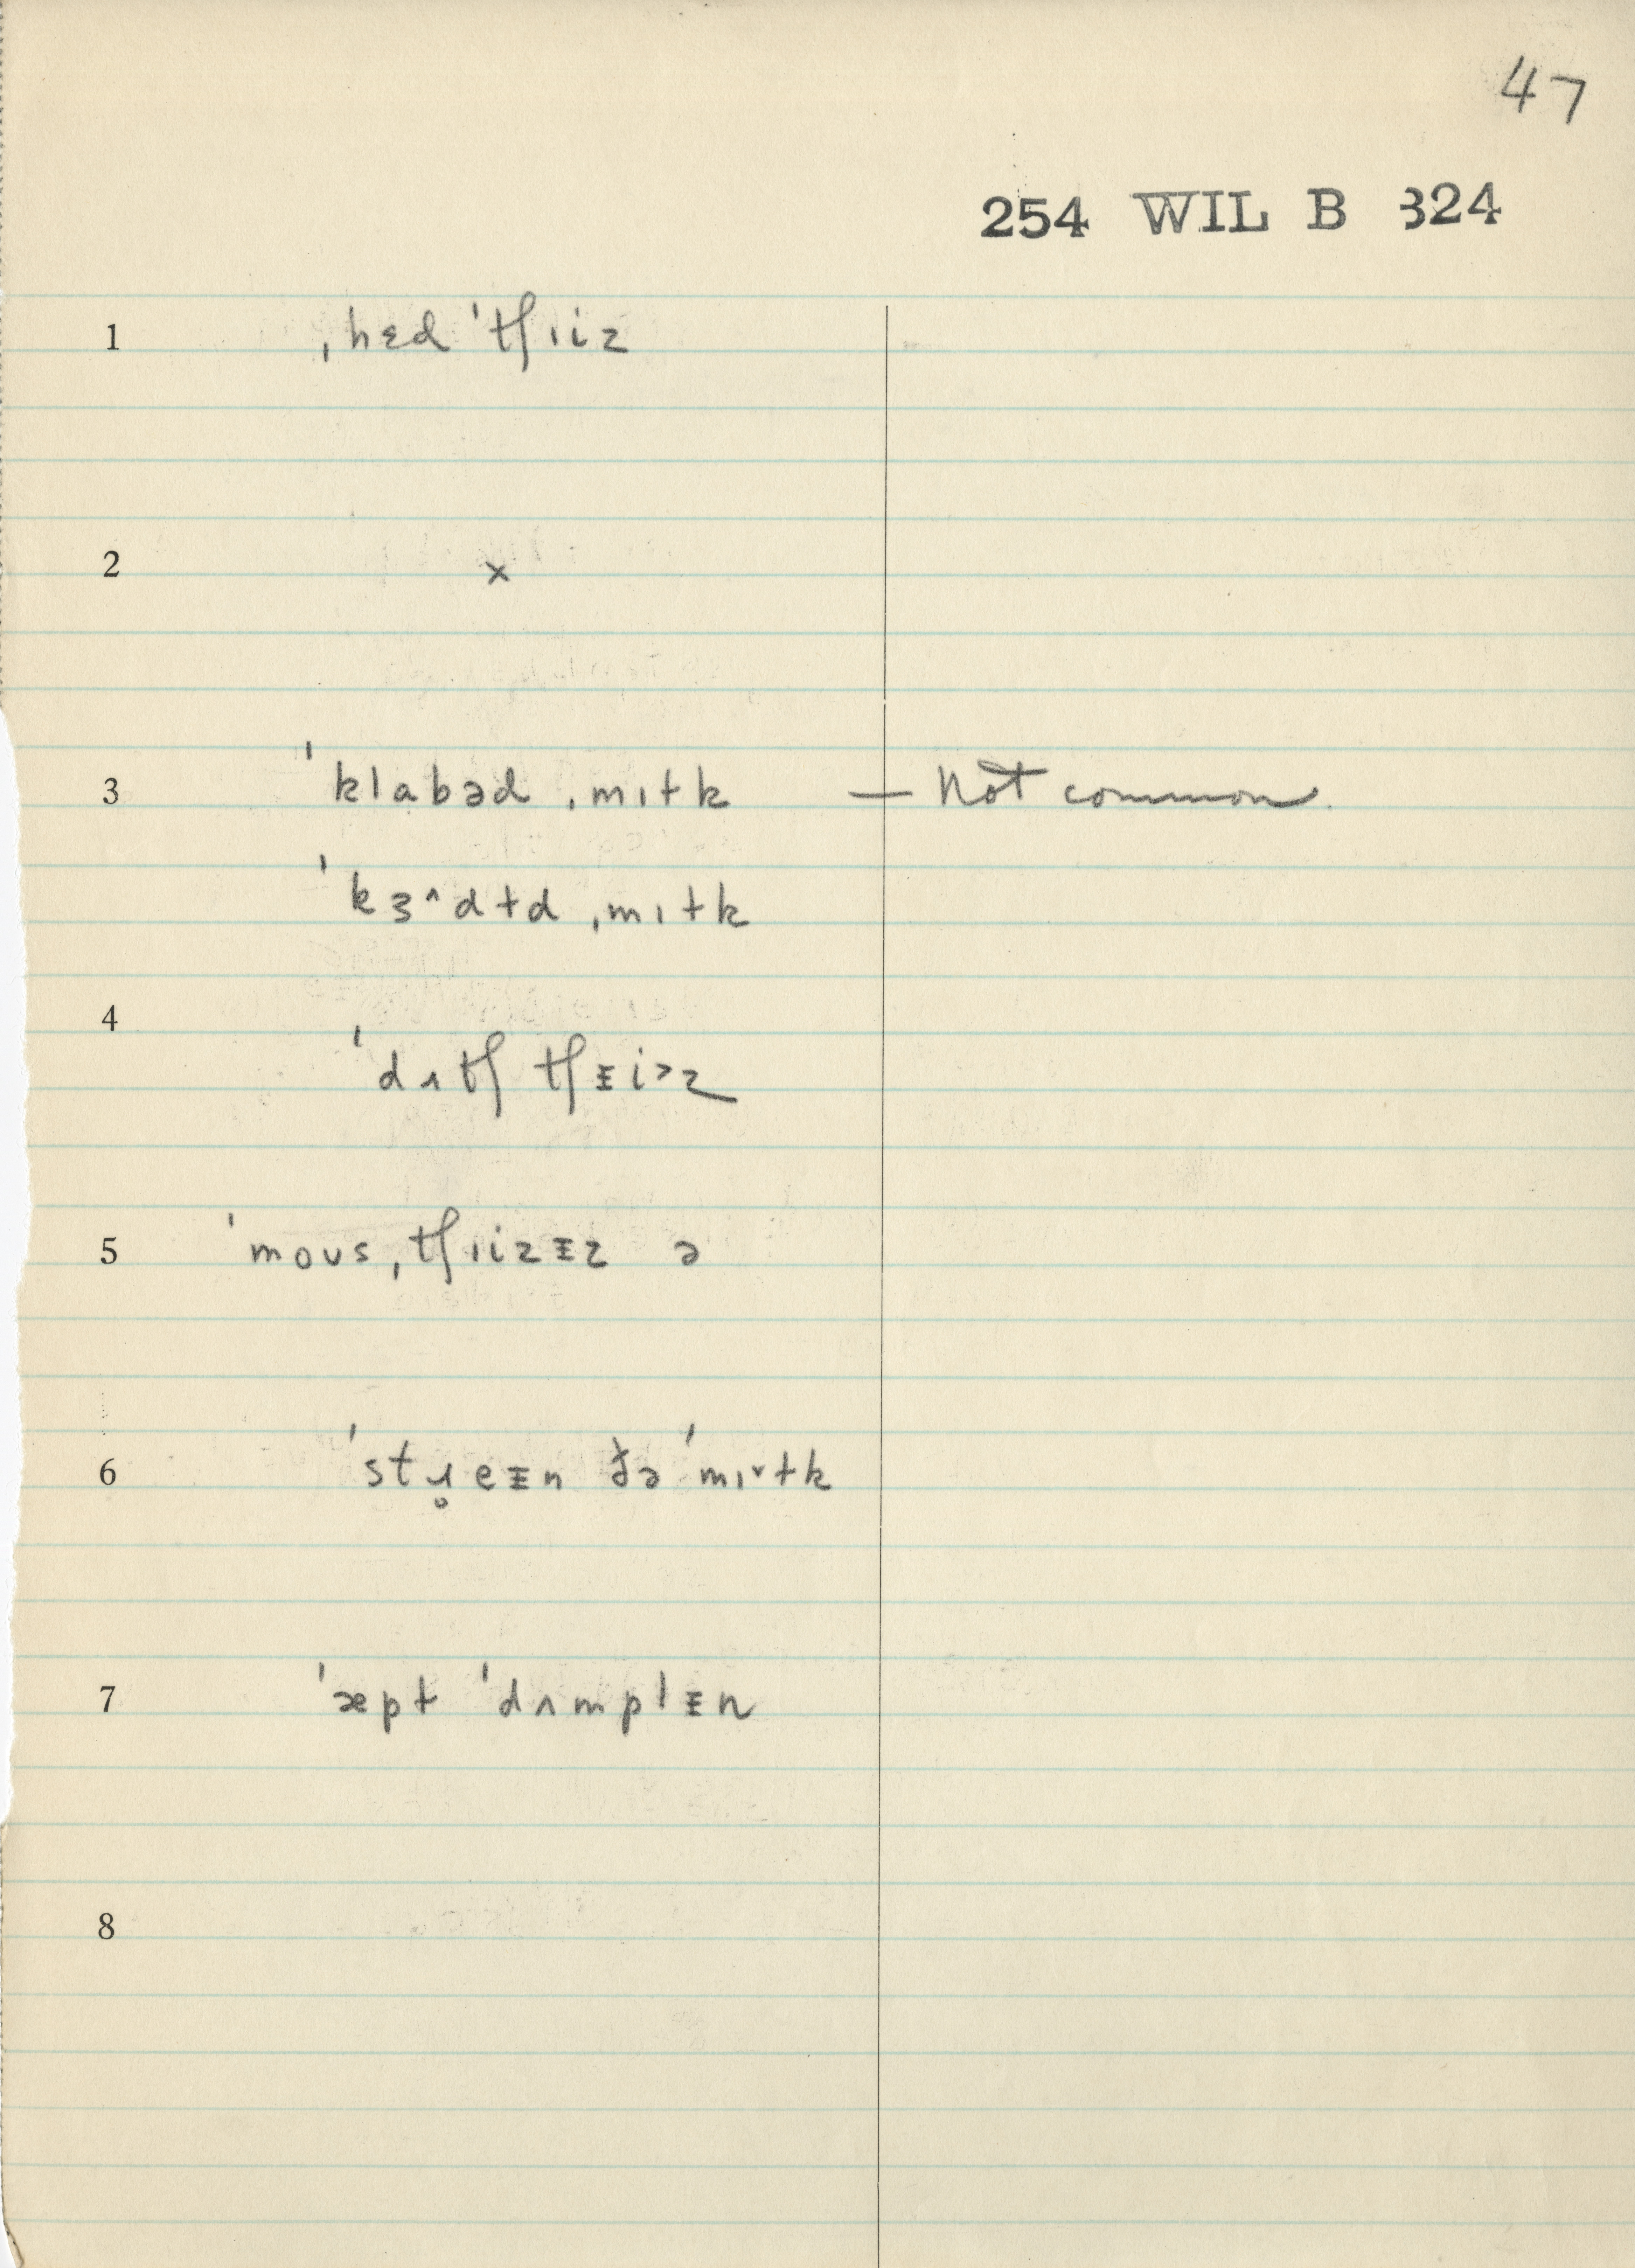 47
254 WIL B 324
1 ˌhɛd ˈtʃɪiz
2 ×
3 ˈklabəd ˌmɪɫk — Not common.
ˈkɜ˄dɫd ˌmɪɫk
4 ˈdʌtʃ tʃᵻi˃z
5 ˈmoʊsˌtʃɪizᵻz ə
6 ˈstɹ̥eᵻn ðə ˈmɪ˅ɫk
7 ˈæpɫ ˈdʌmplᵻn
8